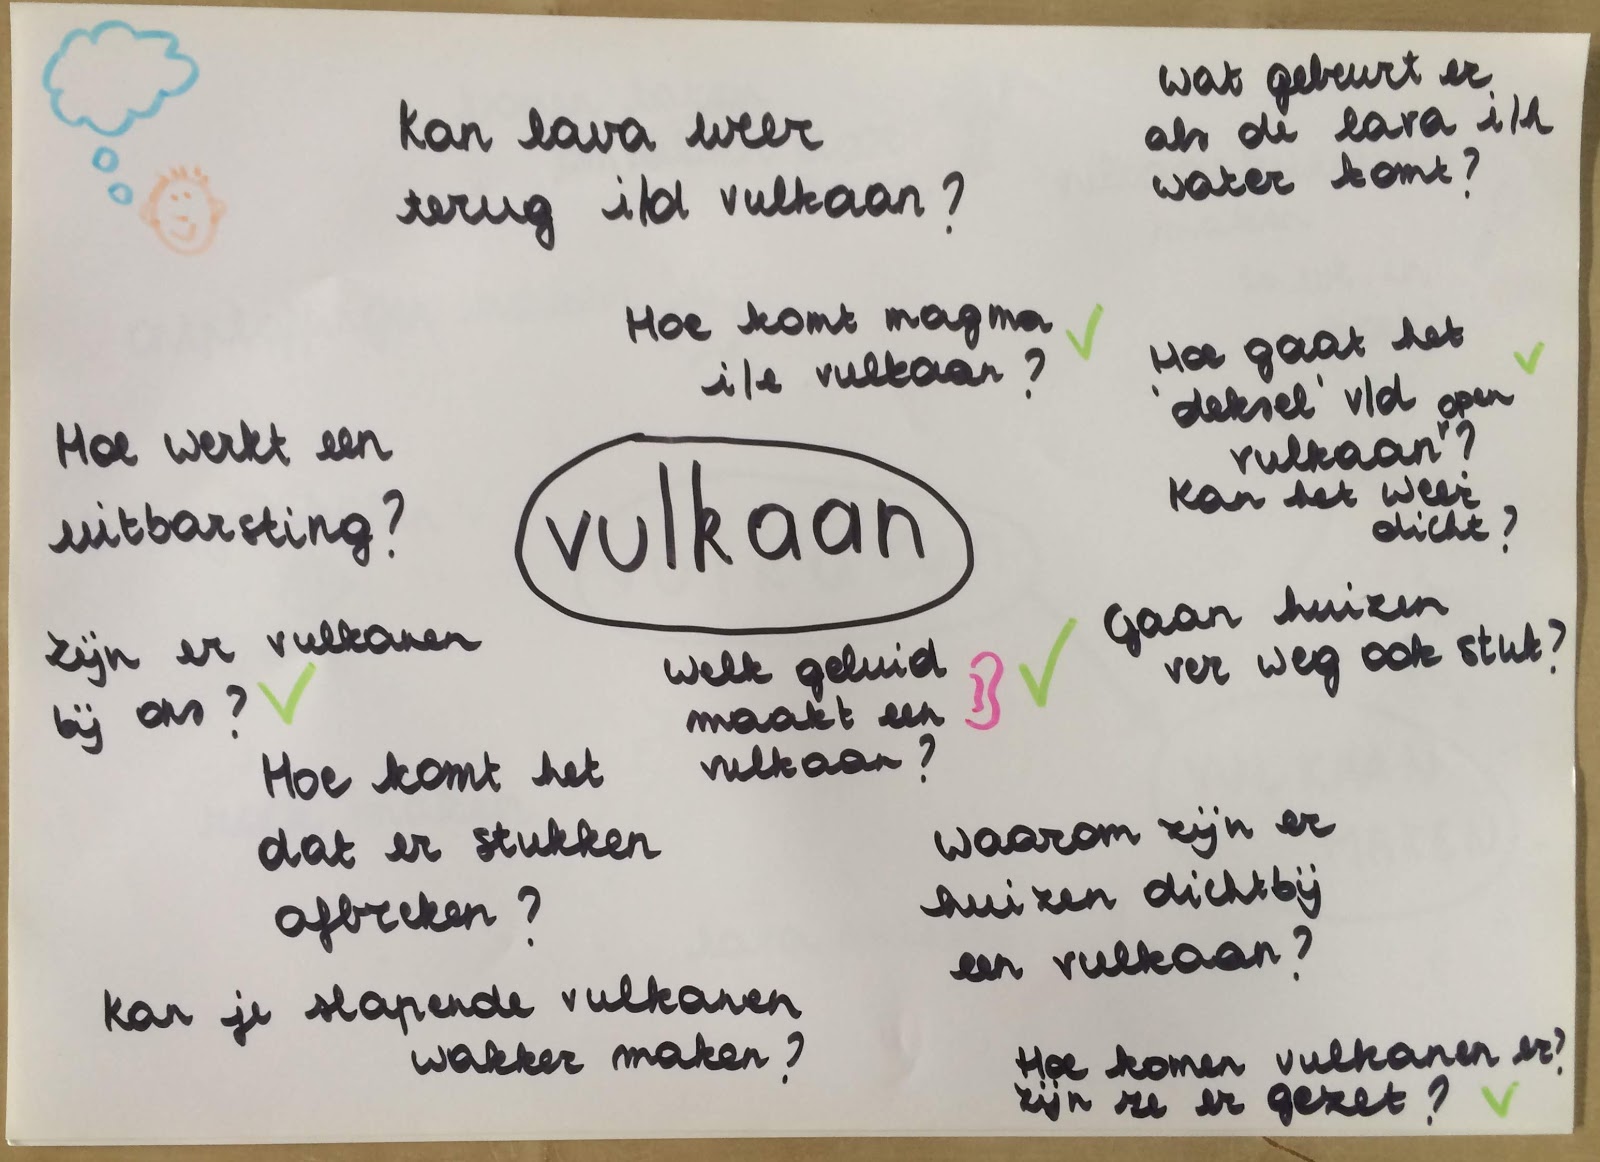 Kan lava weer
terug i/d vulkaan?
Wat gebeurt er
als de lava i/h
water komt?
Hoe komt magma
i/e vulkaan?
Hoe gaat het
'deksel' v/d open
vulkaan?
Kan het weer
dicht?
Hoe werkt een
uitbarsting?
vulkaan
Zijn er vulkanen
bij ons?
Welk geluid
maakt een
vulkaan?
Gaan huizen
ver weg ook stuk?
Hoe komt het
dat er stukken
afbreken?
Waarom zijn er
huizen dichtbij
een vulkaan?
Kan je slapende vulkanen
wakker maken?
Hoe komen vulkanen er?
Zijn ze er gezet?